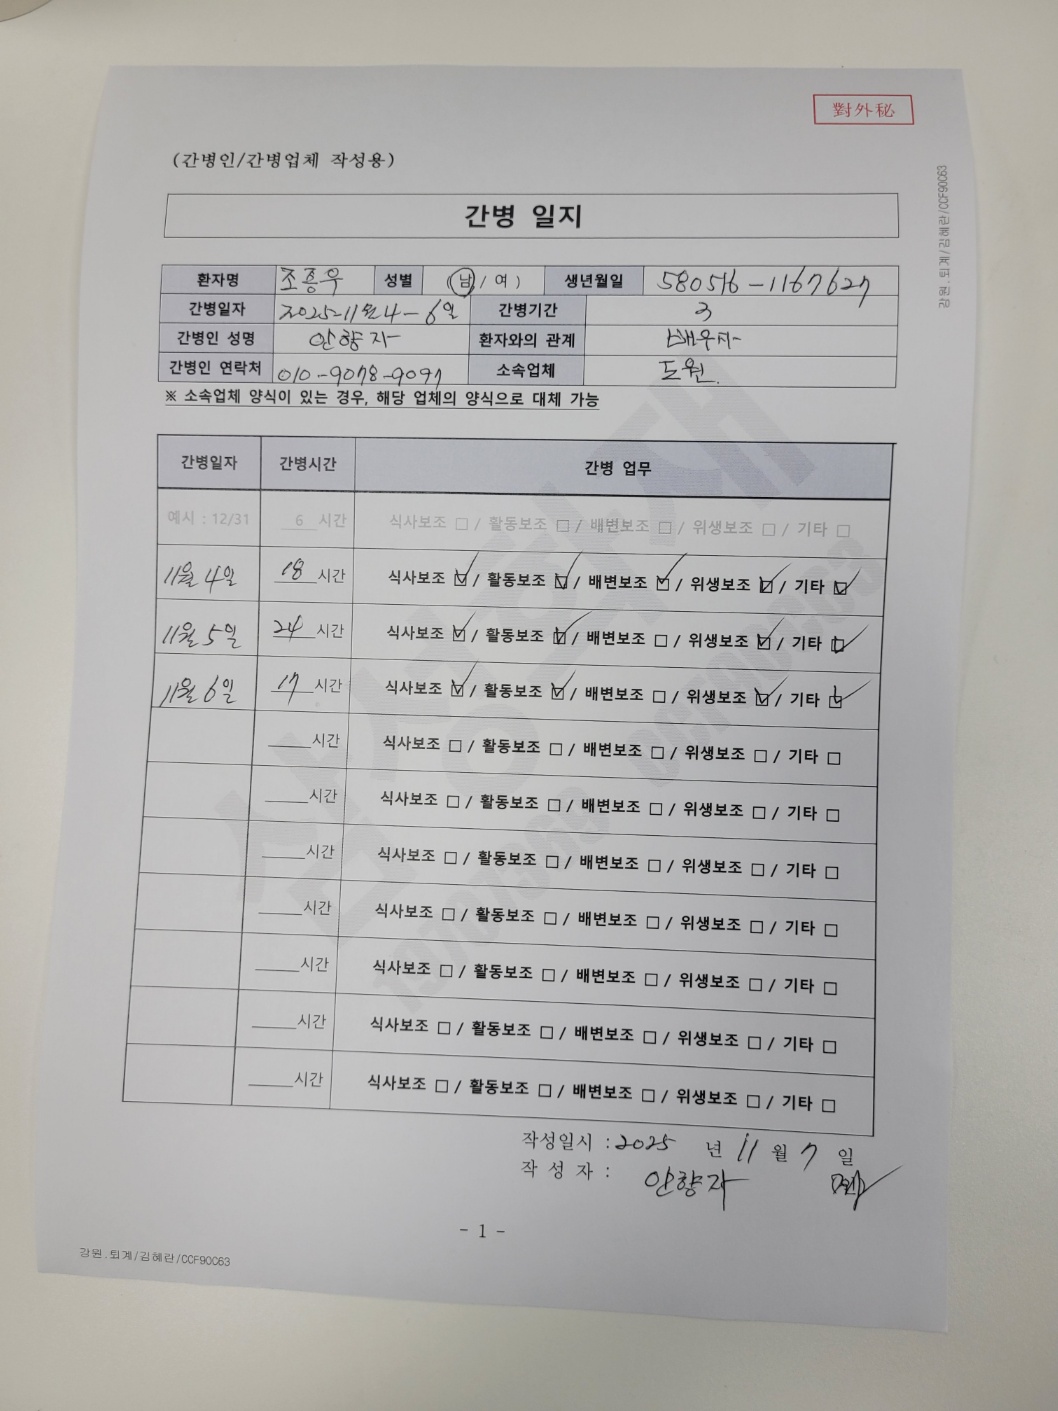 對外秘
(간병인/간병업체 작성용)
강원.퇴계/김혜란/CCF90C63
간병 일지
환자명 조흥우 성별 (남/ 여 ) 생년월일 580516-1167627
간병일자 2025-11월4-6일 간병기간 3
간병인 성명 안향자 환자와의 관계 배우자
간병인 연락처 010-9078-9097 소속업체 도원.
※ 소속업체 양식이 있는 경우, 해당 업체의 양식으로 대체 가능
간병일자 간병시간 간병 업무
예시 : 12/31 6 시간 식사보조 □ / 활동보조 □ / 배변보조 □ / 위생보조 □ / 기타 □
11월 4일 18 시간 식사보조 ☑ / 활동보조 ☑ / 배변보조 ☑ / 위생보조 ☑ / 기타 ☑
11월 5일 24 시간 식사보조 ☑ / 활동보조 ☑ / 배변보조 □ / 위생보조 ☑ / 기타 ☑
11월 6일 17 시간 식사보조 ☑ / 활동보조 ☑ / 배변보조 □ / 위생보조 ☑ / 기타 ☑
시간 식사보조 □ / 활동보조 □ / 배변보조 □ / 위생보조 □ / 기타 □
시간 식사보조 □ / 활동보조 □ / 배변보조 □ / 위생보조 □ / 기타 □
시간 식사보조 □ / 활동보조 □ / 배변보조 □ / 위생보조 □ / 기타 □
시간 식사보조 □ / 활동보조 □ / 배변보조 □ / 위생보조 □ / 기타 □
시간 식사보조 □ / 활동보조 □ / 배변보조 □ / 위생보조 □ / 기타 □
시간 식사보조 □ / 활동보조 □ / 배변보조 □ / 위생보조 □ / 기타 □
시간 식사보조 □ / 활동보조 □ / 배변보조 □ / 위생보조 □ / 기타 □
삼성화재
작성일시 : 2025 년 11 월 7 일
작 성 자 : 안향자
- 1 -
강원.퇴계/김혜란/CCF90C63